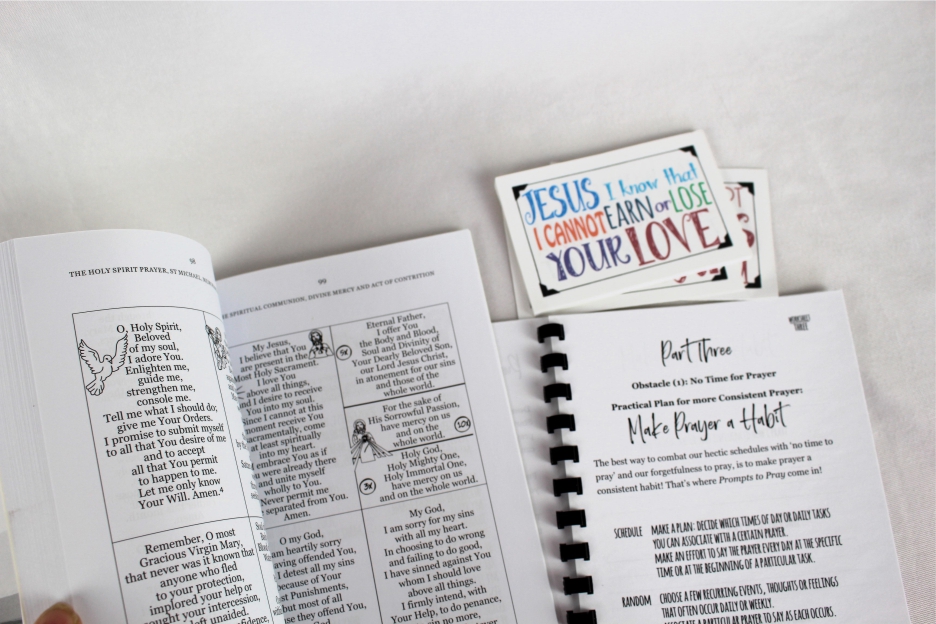 98
THE HOLY SPIRIT PRAYER, ST MICHAEL,
O, Holy Spirit,
Beloved
of my soul,
I adore You.
Enlighten me,
guide me,
strengthen me,
console me.
Tell me what I should do;
give me Your Orders.
I promise to submit myself
to all that You desire of me
and to accept
all that You permit
to happen to me.
Let me only know
Your Will. Amen.⁴
Remember, O most
Gracious Virgin Mary,
that never was it known that
anyone who fled
to your protection,
implored your help or
sought your intercession,
left unaided.
99
SPIRITUAL COMMUNION, DIVINE MERCY AND ACT OF CONTRITION
My Jesus,
I believe that You
are present in the
Most Holy Sacrament.
I love You
above all things,
and I desire to receive
You into my soul.
Since I cannot at this
moment receive You
sacramentally, come
at least spiritually
into my heart.
I embrace You as if
You were already there
and unite myself
wholly to You.
Never permit me
to be separated from You.
Amen.
5x
Eternal Father,
I offer You
the Body and Blood,
Soul and Divinity of
Your Dearly Beloved Son,
our Lord Jesus Christ,
in atonement for our sins
and those of the
whole world.
For the sake of
His Sorrowful Passion,
have mercy on us
and on the
whole world.
10x
Holy God,
Holy Mighty One,
Holy Immortal One,
have mercy on us
and on the whole world.
3x
O my God,
I am heartily sorry
having offended You,
I detest all my sins
because of Your
just Punishments,
but most of all
because they offend You,
My God,
I am sorry for my sins
with all my heart.
In choosing to do wrong
and failing to do good,
I have sinned against You
whom I should love
above all things.
I firmly intend, with
Your Help, to do penance,
sin no more,
JESUS I know that
I CANNOT EARN or LOSE
YOUR LOVE
WORKSHEET
THREE
Part Three
Obstacle (1): No Time for Prayer
Practical Plan for more Consistent Prayer:
Make Prayer a Habit
The best way to combat our hectic schedules with 'no time to
pray' and our forgetfulness to pray, is to make prayer a
consistent habit! That's where Prompts to Pray come in!
SCHEDULE MAKE A PLAN: DECIDE WHICH TIMES OF DAY OR DAILY TASKS
YOU CAN ASSOCIATE WITH A CERTAIN PRAYER.
MAKE AN EFFORT TO SAY THE PRAYER EVERY DAY AT THE SPECIFIC
TIME OR AT THE BEGINNING OF A PARTICULAR TASK.
RANDOM CHOOSE A FEW RECURRING EVENTS, THOUGHTS OR FEELINGS
THAT OFTEN OCCUR DAILY OR WEEKLY.
ASSOCIATE A PARTICULAR PRAYER TO SAY AS EACH OCCURS.